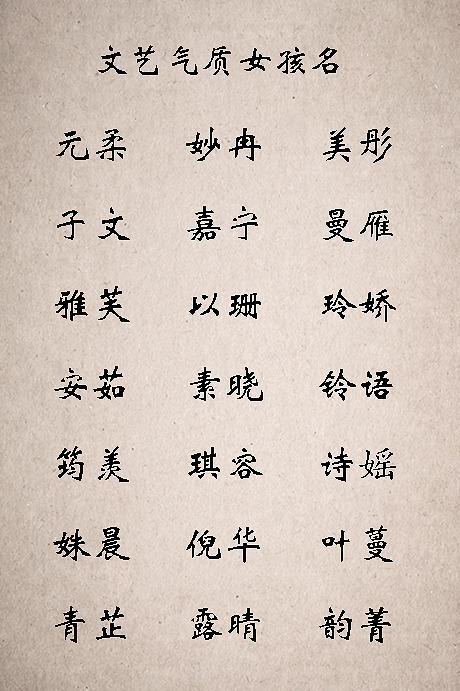 文艺气质女孩名
元柔 妙冉 美彤
子文 嘉宁 曼雁
雅芙 以珊 玲娇
安茹 素晓 铃语
筠羡 琪容 诗婼
姝晨 倪华 叶蔓
青芷 露晴 韵菁